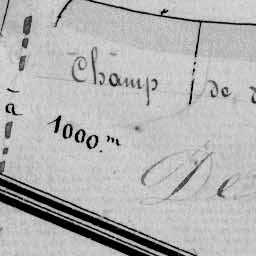 Champ de
à 1000.m
De